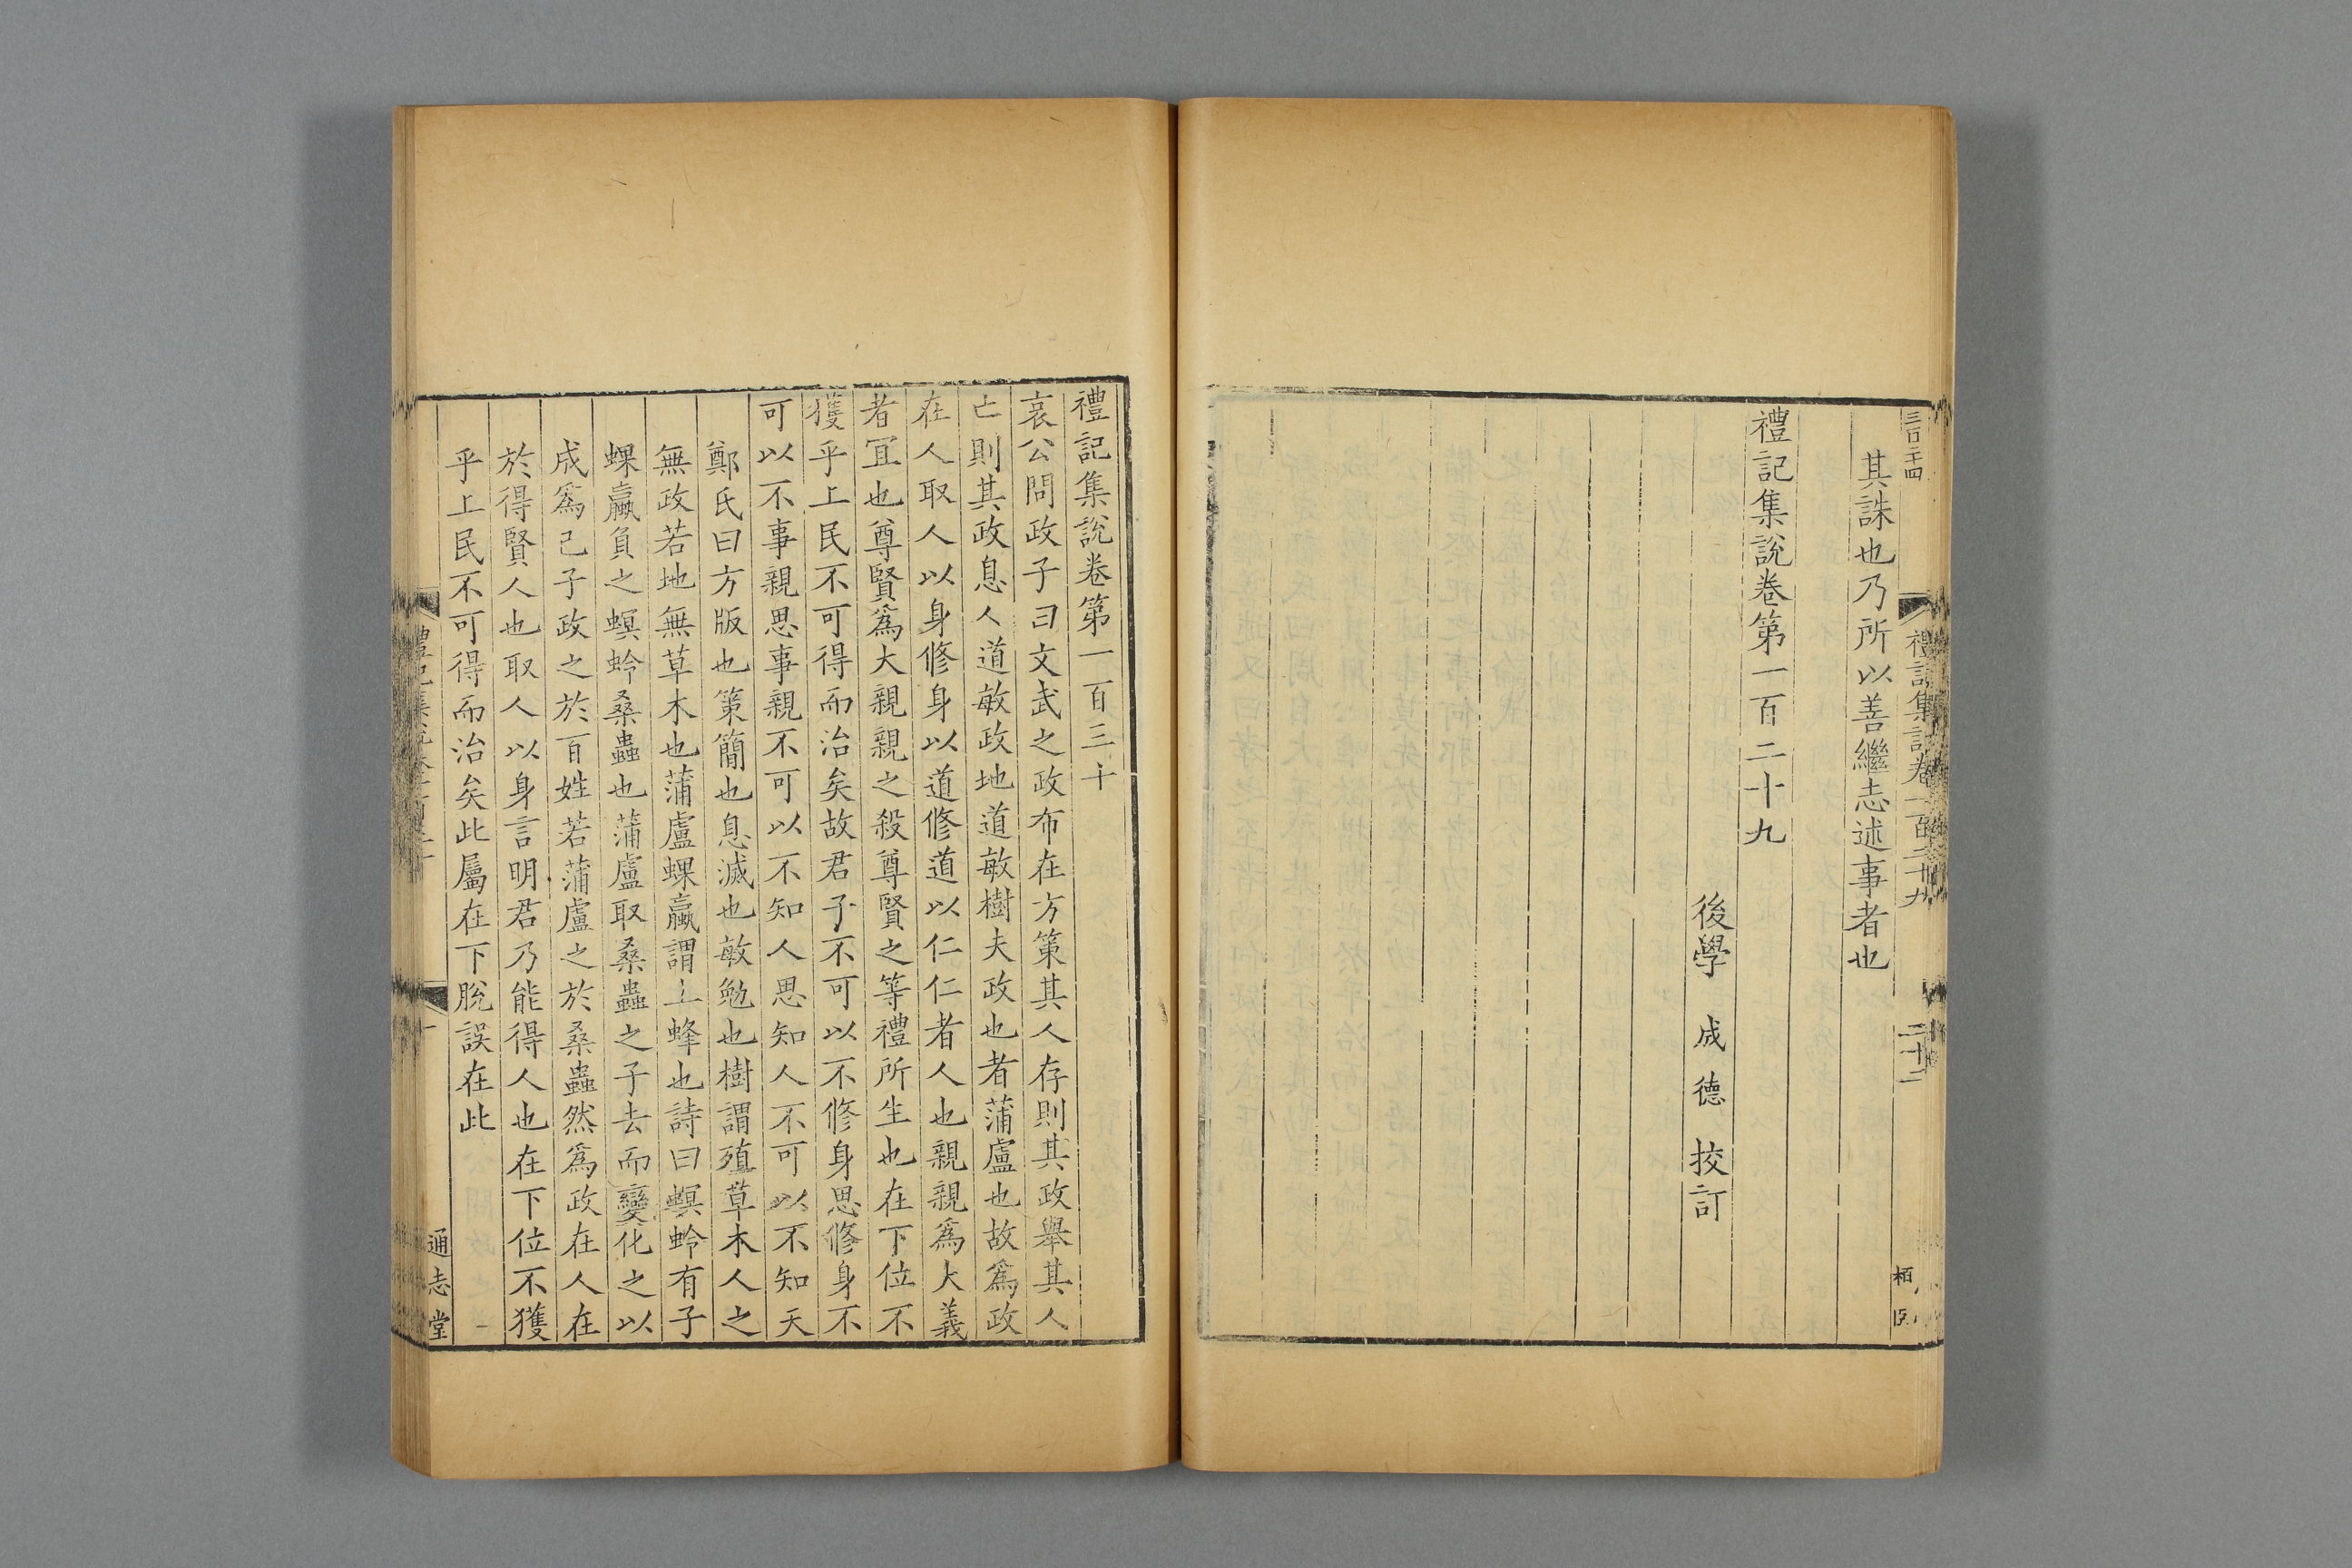 其誅也乃所以善繼志述事者也
禮記集說卷第一百二十九
後學 成德 挍訂
禮記集說卷一百二十九
二十二
禮記集說卷第一百三十
哀公問政子曰文武之政布在方策其人存則其政舉其人
亡則其政息人道敏政地道敏樹夫政也者蒲盧也故爲政
在人取人以身修身以道修道以仁仁者人也親親爲大義
者冝也尊賢爲大親親之殺尊賢之等禮所生也在下位不
獲乎上民不可得而治矣故君子不可以不修身思修身不
可以不事親思事親不可以不知人思知人不可以不知天
鄭氏曰方版也策簡也息滅也敏勉也樹謂殖草木人之
無政若地無草木也蒲盧蜾蠃謂土蜂也詩曰螟蛉有子
蜾蠃負之螟蛉桑蟲也蒲盧取桑蟲之子去而變化之以
成爲己子政之於百姓若蒲盧之於桑蟲然爲政在人在
於得賢人也取人以身言明君乃能得人也在下位不獲
乎上民不可得而治矣此屬在下脫誤在此
通志堂